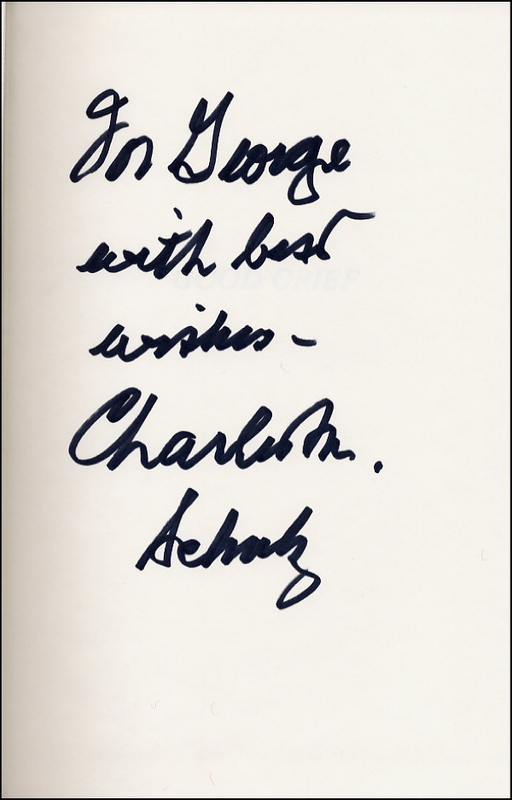 For George
with best
GOOD GRIEF
wishes –
Charles M.
Schulz